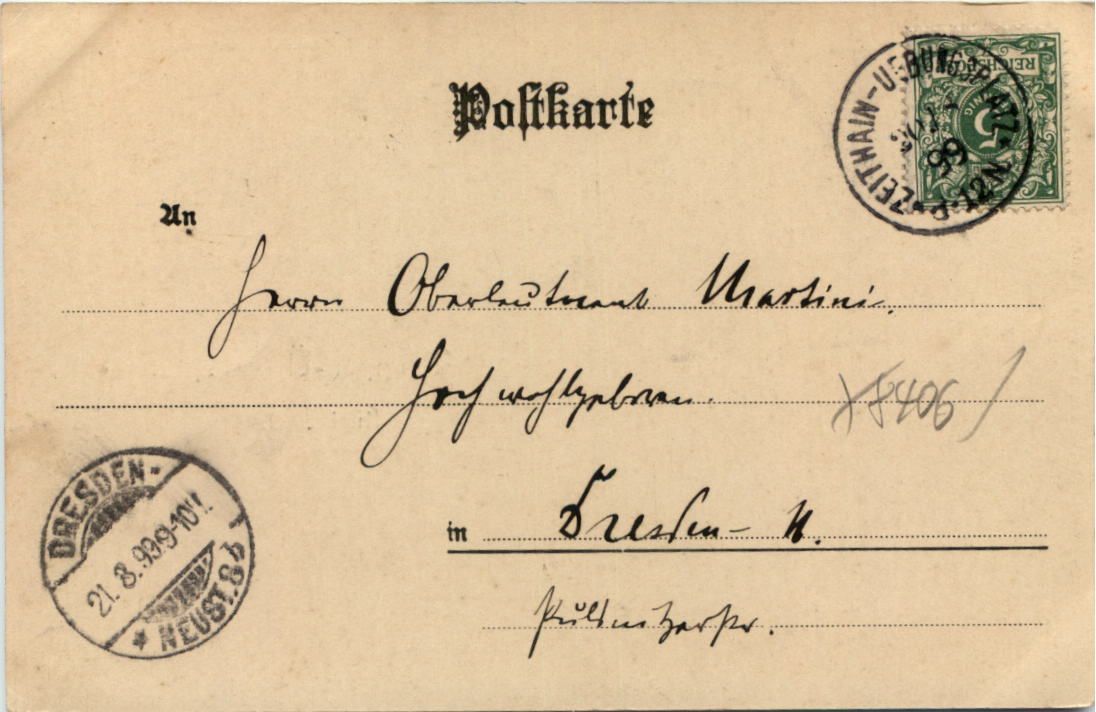 Postkarte
REICHSPOST
5
ZEITHAIN-UEBUNGSPLATZ
99
8-12N.
An
Herrn Oberleutnant Martini.
Hochwohlgeboren.
8406
in Dresden-N.
Pulsnitzerstr.
DRESDEN-
21.8.99 9-10V.
NEUST. 8